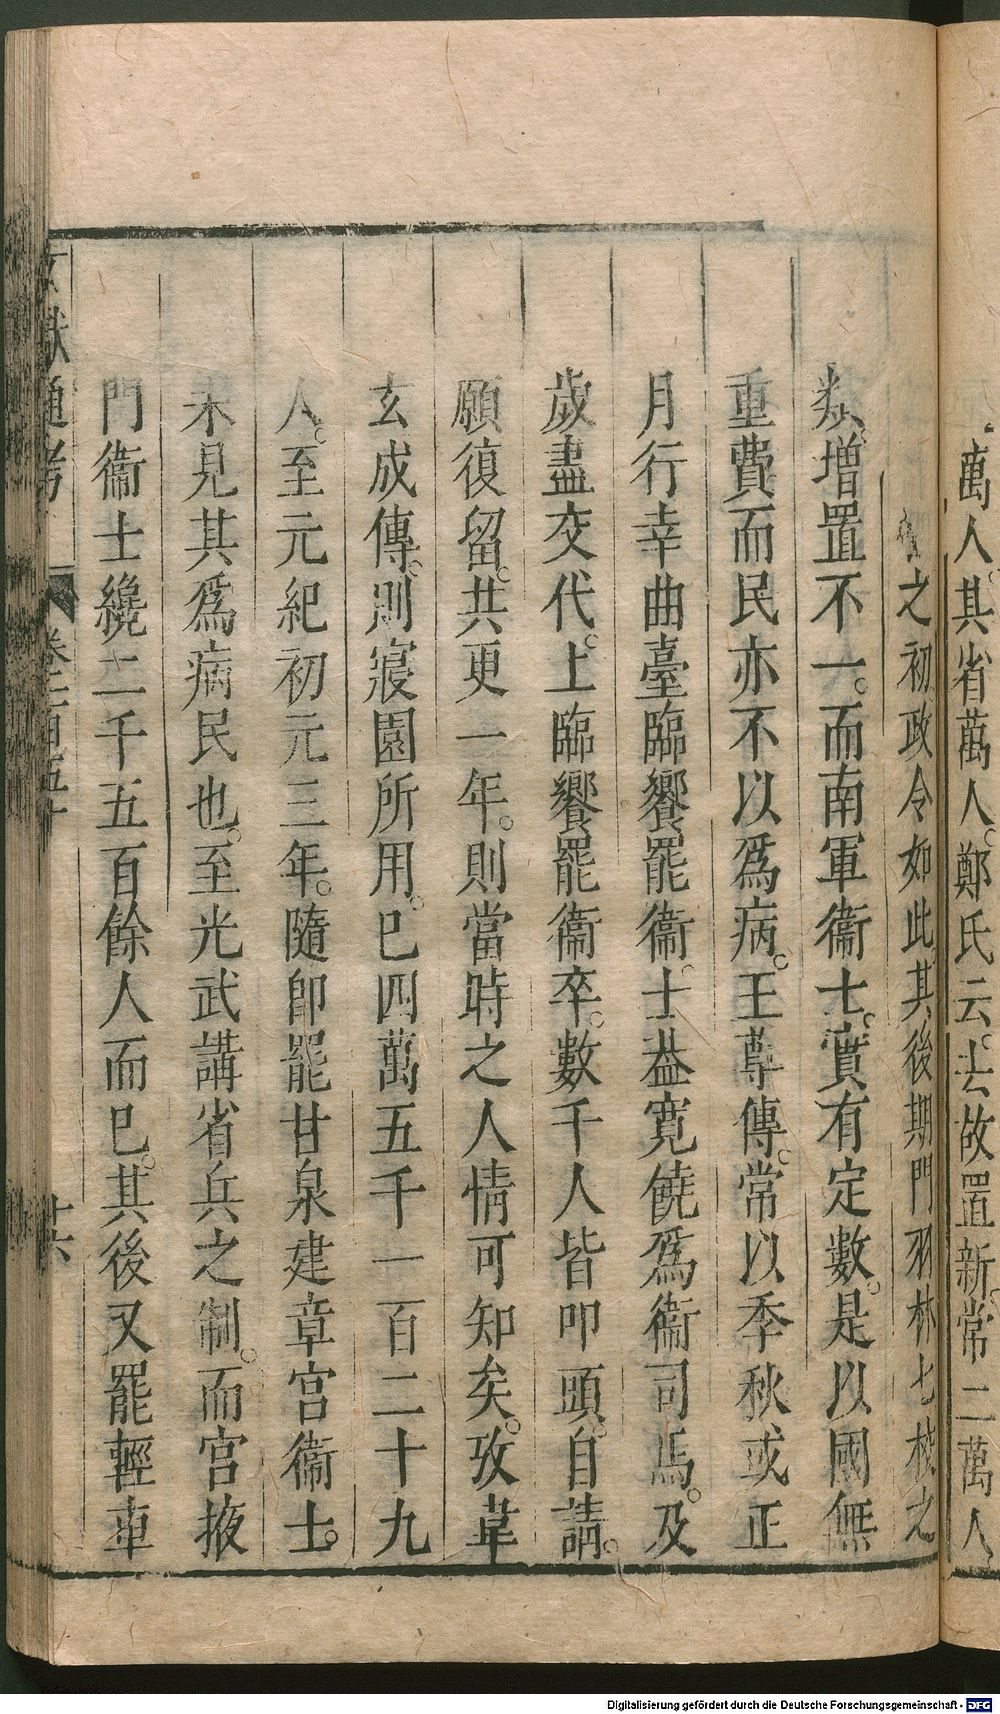 萬人。其省萬人。鄭氏云。去故置新。常二萬人。
之初政令如此其後期門羽林七校之
類。增置不一。而南軍衞士。實有定數。是以國無
重費而民亦不以爲病。王尊傳。常以季秋或正
月行幸曲臺臨饗罷衞士。益寛饒爲衞司馬。及
歲盡交代。上臨饗罷衞卒。數千人皆叩頭。自請。
願復留。共更一年。則當時之人情可知矣。攷韋
玄成傳。則寢園所用。巳四萬五千一百二十九
人。至元紀初元三年。隨卽罷甘泉建章宮衞士。
未見其爲病民也。至光武講省兵之制。而宮掖
門衞士纔二千五百餘人而巳。其後又罷輕車
文獻通考 卷一百五十 十六
Digitalisierung gefördert durch die Deutsche Forschungsgemeinschaft - DFG